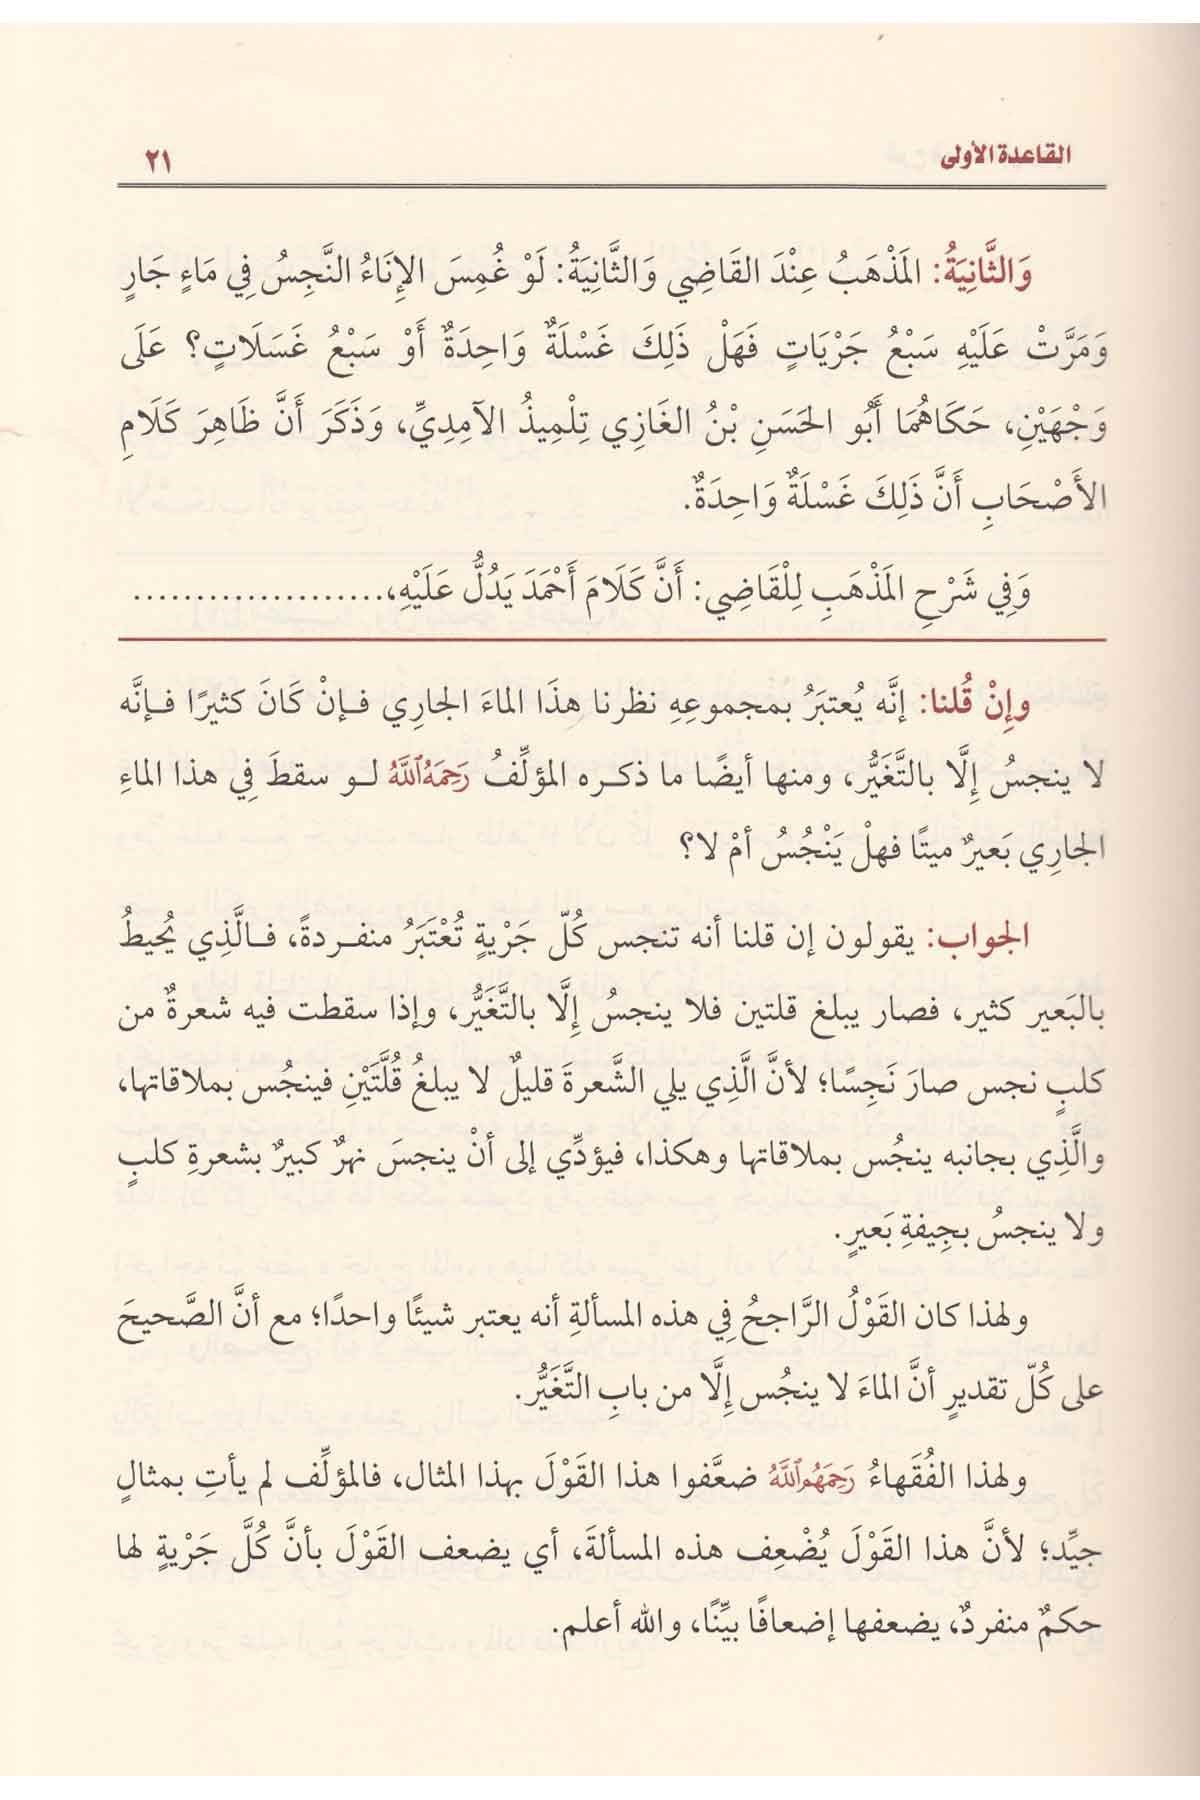 القاعدة الأولى ٢١
وَالثَّانِيَةُ: المَذْهَبُ عِنْدَ القَاضِي وَالثَّانِيَةُ: لَوْ غُمِسَ الإِنَاءُ النَّجِسُ فِي مَاءٍ جَارٍ
وَمَرَّتْ عَلَيْهِ سَبْعُ جَرْيَاتٍ فَهَلْ ذَلِكَ غَسْلَةٌ وَاحِدَةٌ أَوْ سَبْعُ غَسَلَاتٍ؟ عَلَى
وَجْهَيْنِ، حَكَاهُمَا أَبُو الحَسَنِ بْنُ الغَازِي تِلْمِيذُ الآمِدِيِّ، وَذَكَرَ أَنَّ ظَاهِرَ كَلَامِ
الأَصْحَابِ أَنَّ ذَلِكَ غَسْلَةٌ وَاحِدَةٌ.
وَفِي شَرْحِ المَذْهَبِ لِلْقَاضِي: أَنَّ كَلَامَ أَحْمَدَ يَدُلُّ عَلَيْهِ،....................
وإنْ قُلنا: إنَّه يُعتبَرُ بمجموعِهِ نظرنا هذَا الماءَ الجارِي فـإنْ كَانَ كثيرًا فـإنَّه
لا ينجسُ إلَّا بالتَّغَيُّرِ، ومنها أيضًا ما ذكره المؤلِّفُ رَحِمَهُ ٱللَّهُ لـو سقطَ فِي هذا الماءِ
الجارِي بَعيرٌ ميتًا فهلْ يَنْجُسُ أمْ لا؟
الجواب: يقولون إن قلنا أنه تنجس كُلّ جَرْيةٍ تُعْتَبَرُ منفـردةً، فـالَّذِي يُحيطُ
بالبَعير كثير، فصار يبلغ قلتين فلا ينجسُ إلَّا بالتَّغَيُّرِ، وإذا سقطت فيه شعرةٌ من
كلبٍ نجس صارَ نَجِسًا؛ لأنَّ الَّذِي يلي الشَّعرةَ قليلٌ لا يبلغُ قُلَّتَيْنِ فينجُس بملاقاتها،
والَّذِي بجانبه ينجُس بملاقاتها وهكذا، فيؤدِّي إلى أنْ ينجسَ نهرٌ كبيرٌ بشعرةِ كلبٍ
ولا ينجسُ بجِيفةِ بَعيرٍ.
ولهذا كان القَوْلُ الرَّاجحُ فِي هذه المسألةِ أنه يعتبر شيئًا واحدًا؛ مع أنَّ الصَّحيحَ
على كُلّ تقديرٍ أنَّ الماءَ لا ينجُس إلَّا من بابِ التَّغَيُّرِ.
ولهذا الفُقَهاءُ رَحِمَهُمُ ٱللَّهُ ضعَّفوا هذا القَوْلَ بهذا المثال، فالمؤلِّف لم يأتِ بمثالٍ
جيِّد؛ لأنَّ هذا القَوْلَ يُضْعِف هذه المسألةَ، أي يضعف القَوْلَ بأنَّ كُلَّ جَرْيةٍ لها
حكمٌ منفردٌ، يضعفها إضعافًا بيِّنًا، والله أعلم.